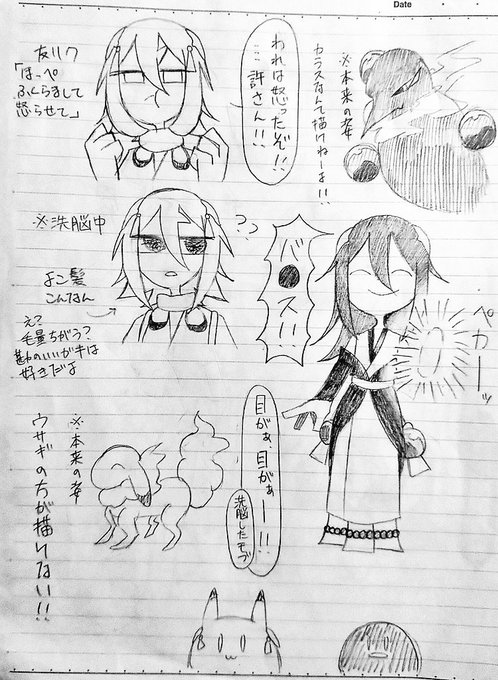 Date
友リク
「ほっぺ
ふくらまして
怒らせて」
われは怒ったぞ!!
…許さん!!
※本来の姿
カラスなんて描けねーよ!!
※洗脳中
よこ髪
こんなん
え?
毛量ちがう?
勘のいいがキは
好きだよ
??
バ●ス!!
ペカーッ
※本来の姿
ウサギの方が描けない!!
目がぁ、目がぁー!!
洗脳したモブ